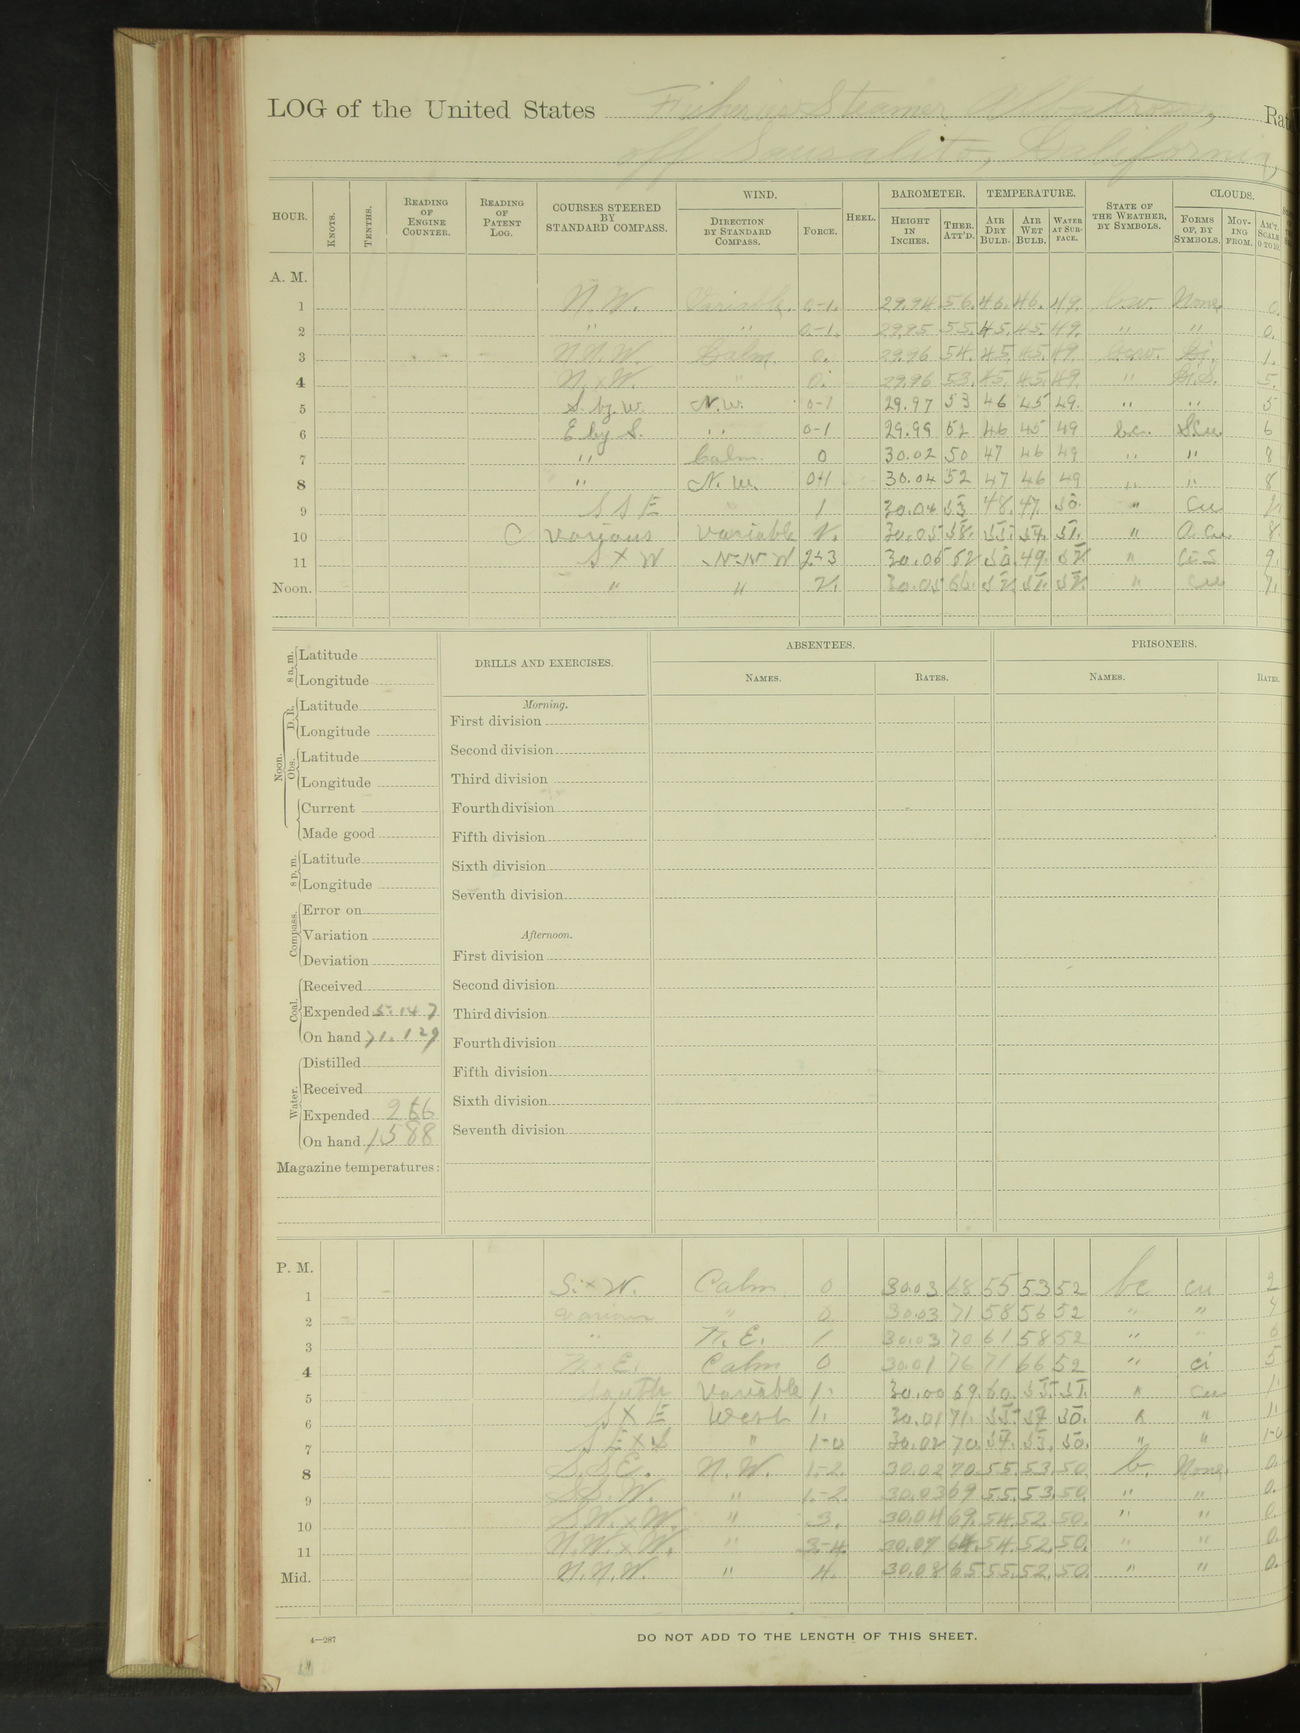 LOG of the United States Fisheries Steamer Albatross, Rat
off Sausalito, California,
HOUR. KNOTS. TENTHS. READING OF ENGINE COUNTER. READING OF PATENT LOG. COURSES STEERED BY STANDARD COMPASS. WIND. DIRECTION BY STANDARD COMPASS. FORCE. HEEL. BAROMETER. HEIGHT IN INCHES. THER. ATT'D. TEMPERATURE. AIR DRY BULB. AIR WET BULB. WATER AT SURFACE. STATE OF THE WEATHER, BY SYMBOLS. CLOUDS. FORMS OF, BY SYMBOLS. MOVING FROM. AM'T. SCALE 0 TO 10.
A. M.
1 N.W. Variable. 0-1. 29.94 56. 46. 46. 49. b.w. None 0.
2 " " 0-1. 29.95 55. 45. 45. 49. " " 0.
3 N.N.W. Calm 0. 29.96 54. 45. 45. 49. Ci. 1.
4 N.xW. " 0. 29.96 53. 45. 45. 49. " Ci.S. 5.
5 S. by. W. N.W. 0-1 29.97 53 46 45 49. " " 5
6 E by S. " 0-1 29.99 52 46 45 49 bc. SCu 6
7 " Calm. 0 30.02 50 47 46 49 " " 8
8 " N.W. 0-1 30.04 52 47 46 49 " " 8
9 S S E 1 30.04 53 48. 47. 50. " Cu
10 C various variable 30.05 58. 55. 54. 51. " A.Cu 8.
11 S X W N-N-W 2-3 30.05 62 50. 49. 52. " Ci-S 9.
Noon. " " 2. 30.05 66. 52. 51. 52. " Cu 7.
8 a. m. Latitude
Longitude
Noon. D. R. Latitude
Longitude
Obs. Latitude
Longitude
Current
Made good
8 p. m. Latitude
Longitude
Compass. Error on
Variation
Deviation
Coal. Received
Expended 5.147
On hand 71.129
Water. Distilled
Received
Expended 266
On hand 1588
Magazine temperatures:
DRILLS AND EXERCISES.
Morning.
First division
Second division
Third division
Fourth division
Fifth division
Sixth division
Seventh division
Afternoon.
First division
Second division
Third division
Fourth division
Fifth division
Sixth division
Seventh division
ABSENTEES.
NAMES. RATES.
PRISONERS.
NAMES. RATES.
P. M.
1 S.xW. Calm 0 30.03 68 55 53 52 bc cu 2
2 various " 0 30.03 71 58 56 52 " " 4
3 " N.E. 1 30.03 70 61 58 52 " " 6
4 N.xE. Calm 0 30.01 76 71 66 52 " ci 5
5 South Variable 1. 30.00 69. 60. 55. 51. " Cu 1.
6 S X E West 1. 30.01 71. 55. 57 50. " " 1.
7 S E X S " 1-0 30.02 70. 54. 53. 50. " " 1-0
8 S.S.E. N.W. 1-2. 30.02 70. 55. 53. 50. b. None. 0.
9 S.S.W. " 1-2 30.03 69 55. 53. 50. " " 0.
10 S.W.xW. " 3. 30.04 69. 54. 52. 50. " " 0.
11 N.W.xW. " 3-4. 30.07 64. 54. 52. 50. " " 0.
Mid. N.N.W. " 4. 30.08 65 55. 52. 50. " " 0.
4—287
DO NOT ADD TO THE LENGTH OF THIS SHEET.